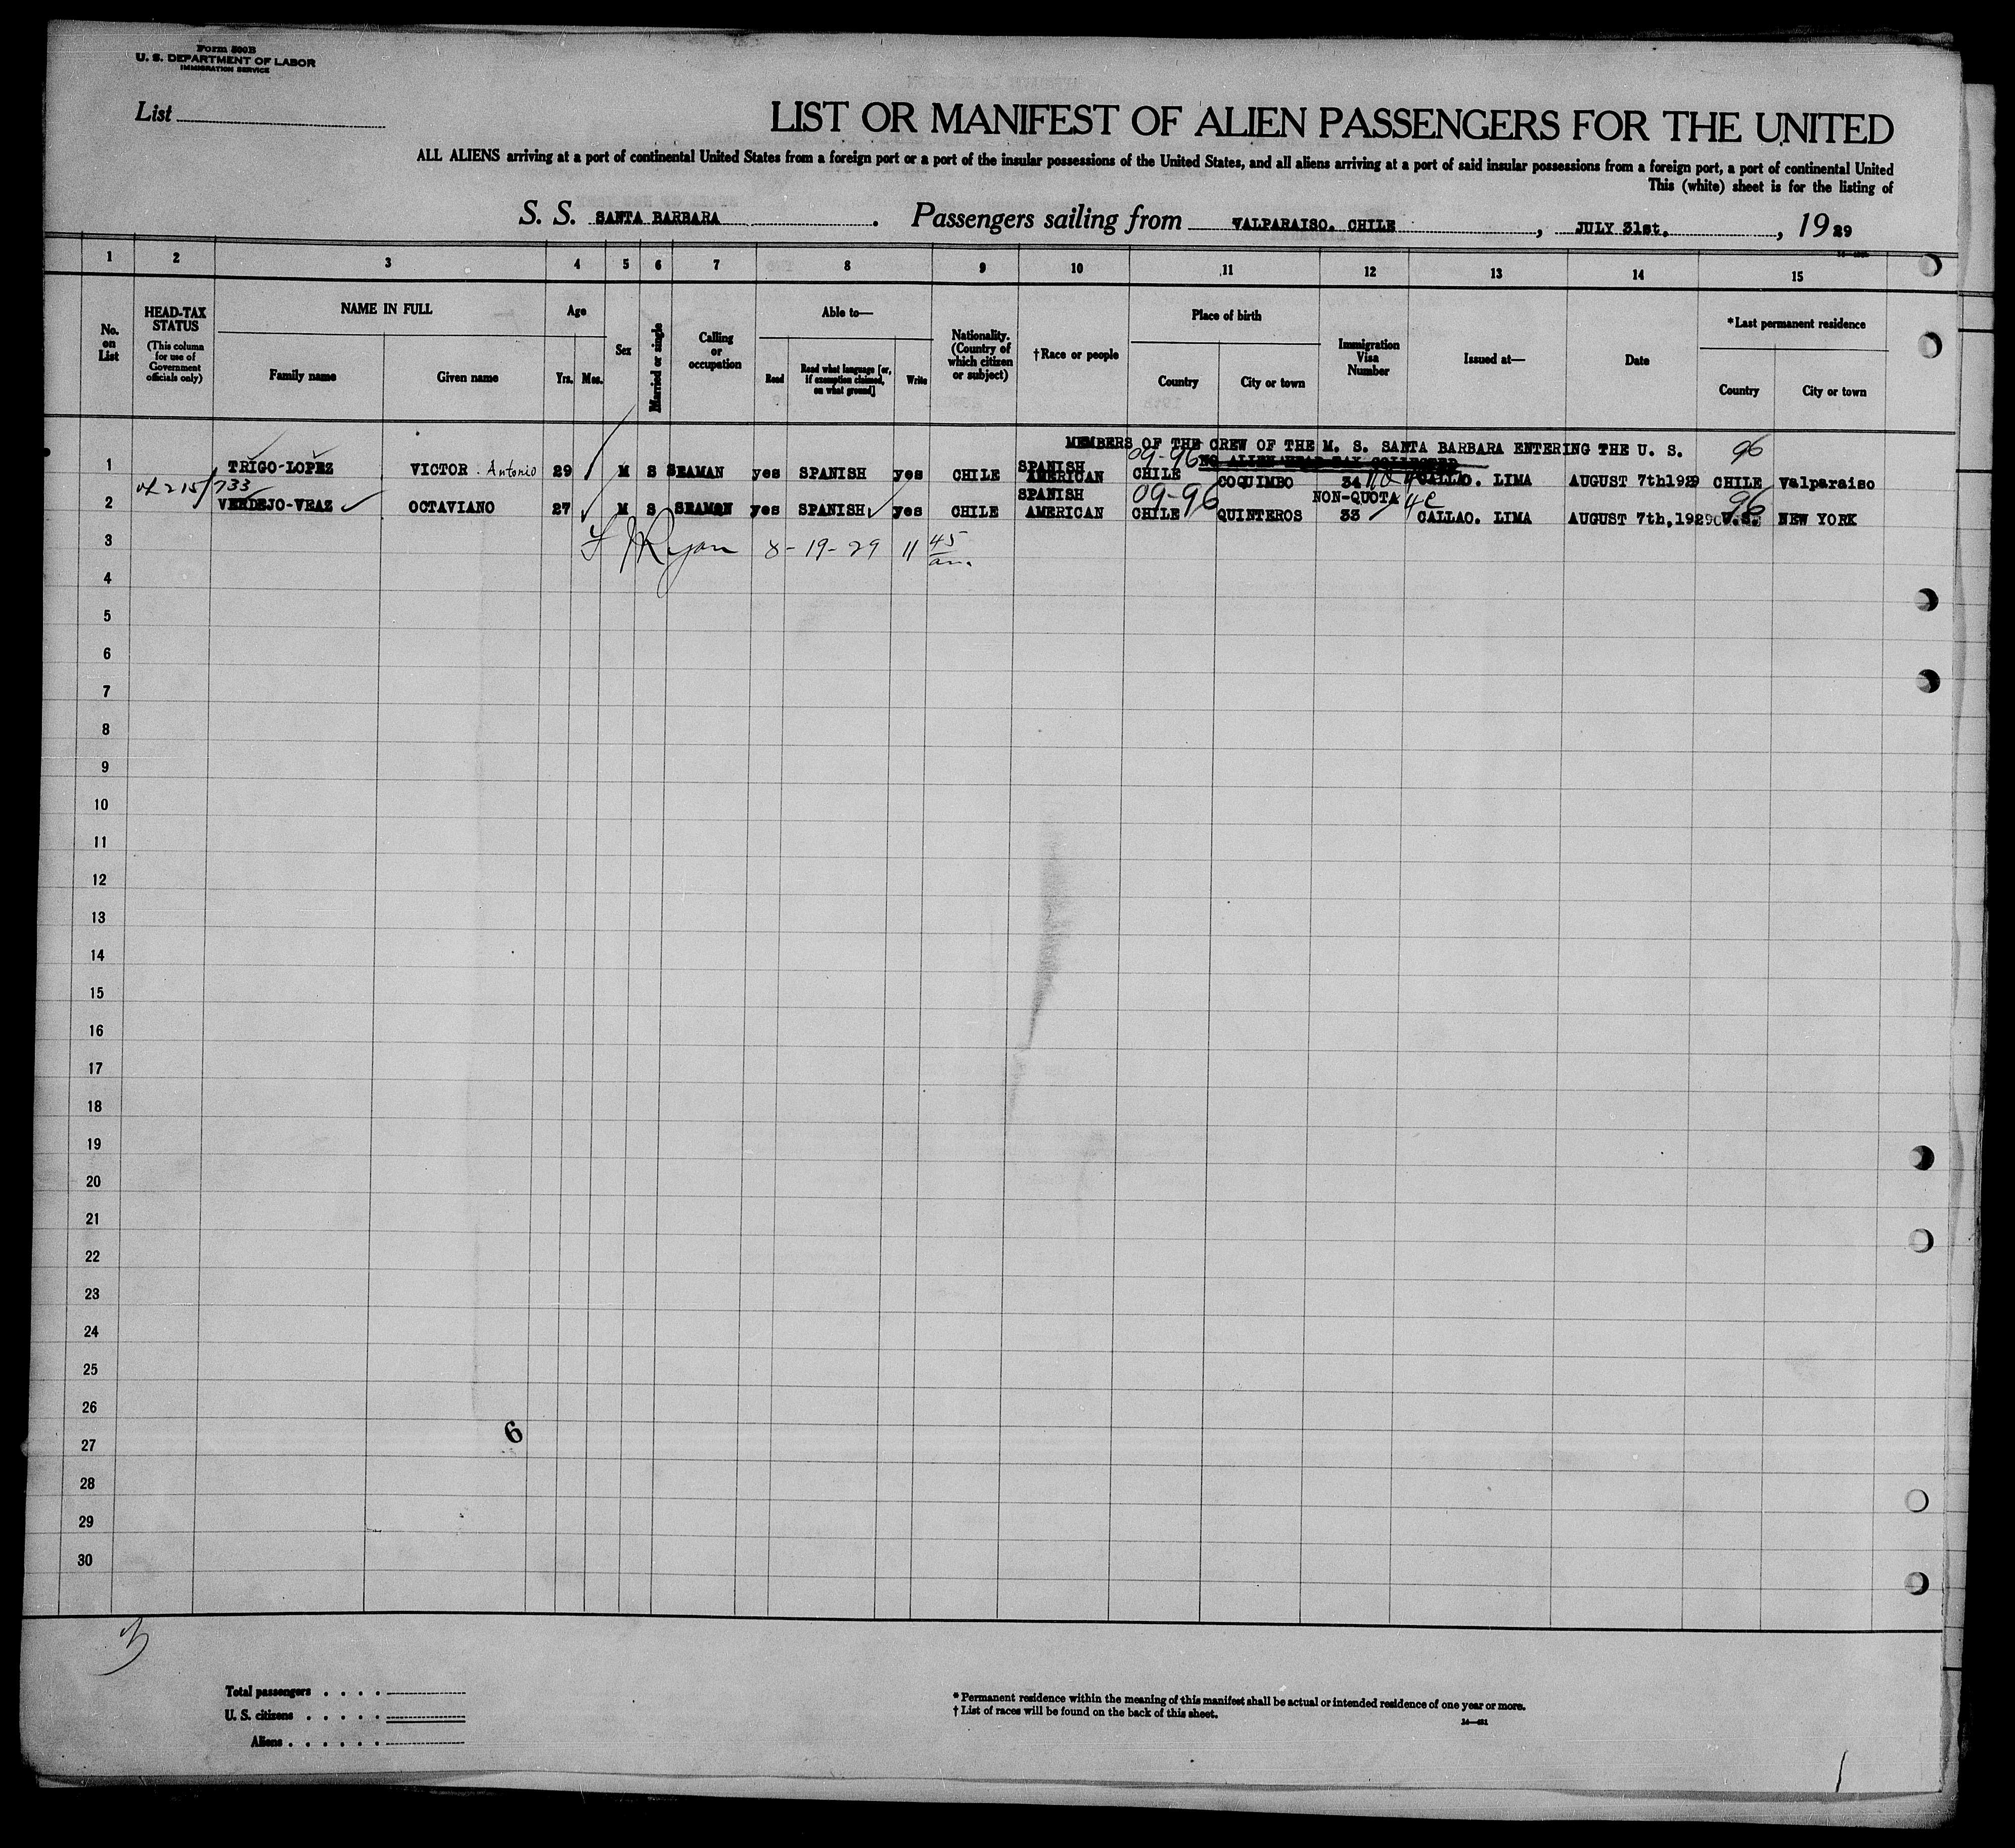 Form 500B
U. S. DEPARTMENT OF LABOR
IMMIGRATION SERVICE
List
LIST OR MANIFEST OF ALIEN PASSENGERS FOR THE UNITED
ALL ALIENS arriving at a port of continental United States from a foreign port or a port of the insular possessions of the United States, and all aliens arriving at a port of said insular possessions from a foreign port, a port of continental United
This (white) sheet is for the listing of
S. S. SANTA BARBARA. Passengers sailing from VALPARAISO. CHILE, JULY 31st., 1929
1 2 3 4 5 6 7 8 9 10 11 12 13 14 15
No. on List
HEAD-TAX STATUS
(This column for use of Government officials only)
NAME IN FULL
Family name Given name
Age
Yrs. Mos.
Sex
Married or single
Calling or occupation
Able to—
Read Read what language [or, if exemption claimed, on what ground] Write
Nationality. (Country of which citizen or subject)
†Race or people
Place of birth
Country City or town
Immigration Visa Number
Issued at—
Date
*Last permanent residence
Country City or town
MEMBERS OF THE CREW OF THE M. S. SANTA BARBARA ENTERING THE U. S.
09-96 NO ALIEN HEAD TAX COLLECTED 96
1 TRIGO-LOPEZ VICTOR Antonio 29 M S SEAMAN yes SPANISH yes CHILE SPANISH AMERICAN CHILE COQUIMBO 34 CALLAO. LIMA AUGUST 7th1929 CHILE Valparaiso
09-96 NON-QUOTA 4c 96
2 VERDEJO-VRAZ OCTAVIANO 27 M S SEAMAN yes SPANISH yes CHILE SPANISH AMERICAN CHILE QUINTEROS 33 CALLAO. LIMA AUGUST 7th,1929 U.S. NEW YORK
3 Ryan 8-19-29 11 45 am.
4
5
6
7
8
9
10
11
12
13
14
15
16
17
18
19
20
21
22
23
24
25
26
6
27
28
29
30
Total passengers
U. S. citizens
Aliens
* Permanent residence within the meaning of this manifest shall be actual or intended residence of one year or more.
† List of races will be found on the back of this sheet.
1